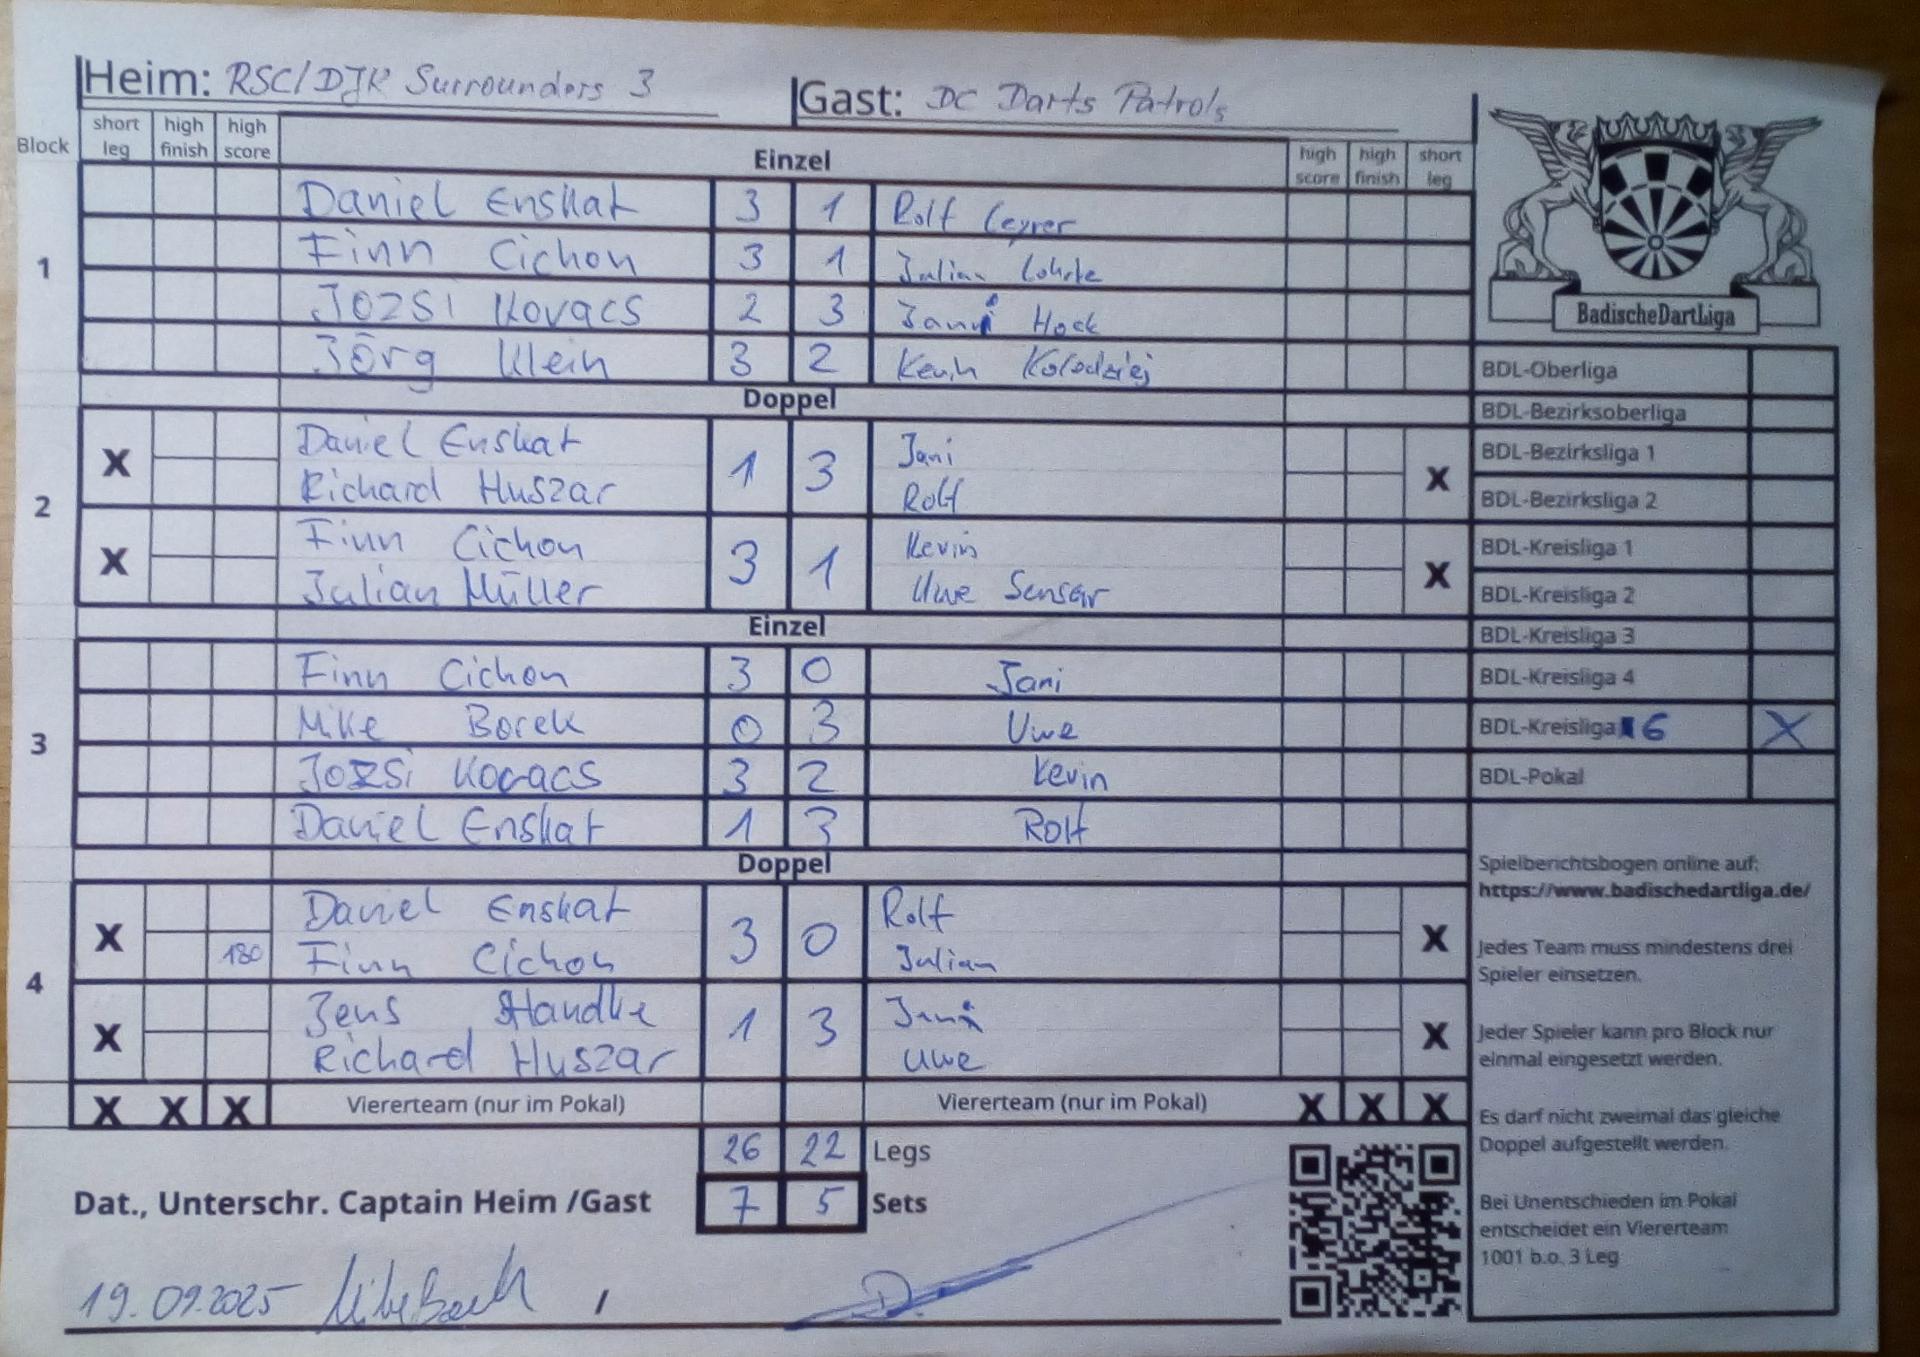 Heim: RSC/DJK Surrounders 3 Gast: DC Darts Patrols
Block short leg high finish high score Einzel high score high finish short leg
1
Daniel Enskat 3 1 Rolf Leyrer
Finn Cichon 3 1 Julian Lohrke
Jozsi Kovacs 2 3 Jani Hock
Jörg Klein 3 2 Kevin Kolodziej
Doppel
2
X Daniel Enskat 1 3 Jani X
Richard Huszar Rolf
X Finn Cichon 3 1 Kevin X
Julian Müller Uwe Sensar
Einzel
3
Finn Cichon 3 0 Jani
Mike Borek 0 3 Uwe
Jozsi Kovacs 3 2 Kevin
Daniel Enskat 1 3 Rolf
Doppel
4
X Daniel Enskat 3 0 Rolf X
180 Finn Cichon Julian
X Jens Handke 1 3 Jani X
Richard Huszar Uwe
X X X Viererteam (nur im Pokal) Viererteam (nur im Pokal) X X X
26 22 Legs
Dat., Unterschr. Captain Heim /Gast 7 5 Sets
19.09.2025 /
BadischeDartLiga
BDL-Oberliga
BDL-Bezirksoberliga
BDL-Bezirksliga 1
BDL-Bezirksliga 2
BDL-Kreisliga 1
BDL-Kreisliga 2
BDL-Kreisliga 3
BDL-Kreisliga 4
BDL-Kreisliga 6 X
BDL-Pokal
Spielberichtsbogen online auf:
https://www.badischedartliga.de/
Jedes Team muss mindestens drei
Spieler einsetzen.
Jeder Spieler kann pro Block nur
einmal eingesetzt werden.
Es darf nicht zweimal das gleiche
Doppel aufgestellt werden.
Bei Unentschieden im Pokal
entscheidet ein Viererteam
1001 b.o. 3 Leg